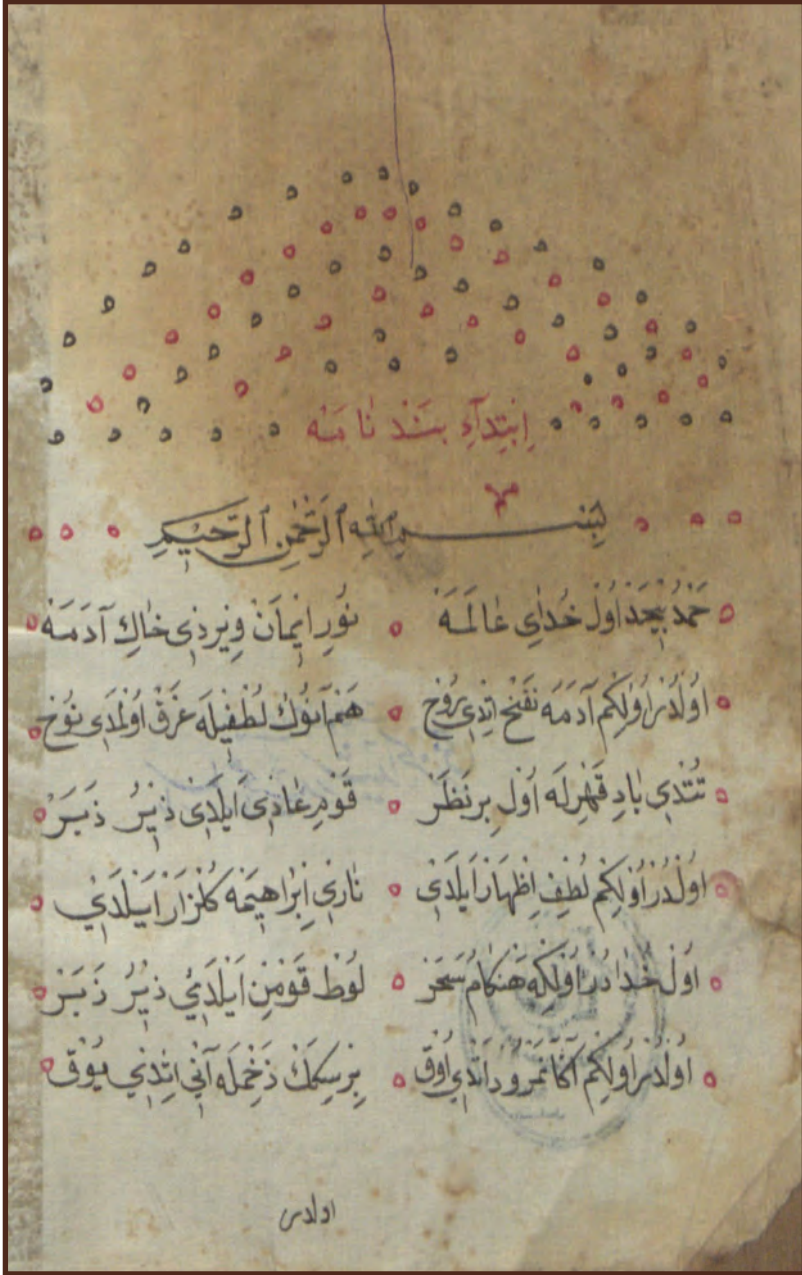 اِبْتِدَآءِ پَنْدْ نَامَهْ
بِسْمِ اللّٰهِ الرَّحْمٰنِ الرَّحِيمِ
حَمْدُ بِيحَدْ اُولْ خُدَايِ عَالَمَهْ نُورِ اِيمَانْ وِيرْدِي خَاكِ آدَمَهْ
اُولْدُرْ اُولْكِمْ آدَمَهْ نَفْخْ اِتْدِي رُوحْ هَمْ آنُوكْ لُطْفِيلَه غَرَقْ اُولْمَدِي نُوحْ
تُتْدِي بَادِ قَهْرِلَه اُولْ بِرْ نَظَرْ قَوْمِ عَادِي اَيْلَدِي زِيرُ زَبَرْ
اُولْدُرْ اُولْكِمْ لُطْفِ اِظْهَارْ اَيْلَدِي نَارِي اِبْرَاهِيمَه كُلْزَارْ اَيْلَدِي
اُولْ خُدَادُرْ اُولْكِه هَنْكَامُ سَحَرْ لُوطْ قَوْمِنْ اَيْلَدِي زِيرُ زَبَرْ
اُولْدُرْ اُولْكِمْ آكَا نَمْرُودْ اَتْدِي اُوقْ بِرْ سِكَكْ زَخْمِلَه آنِي اِتْدِي يُوقْ
اولدر